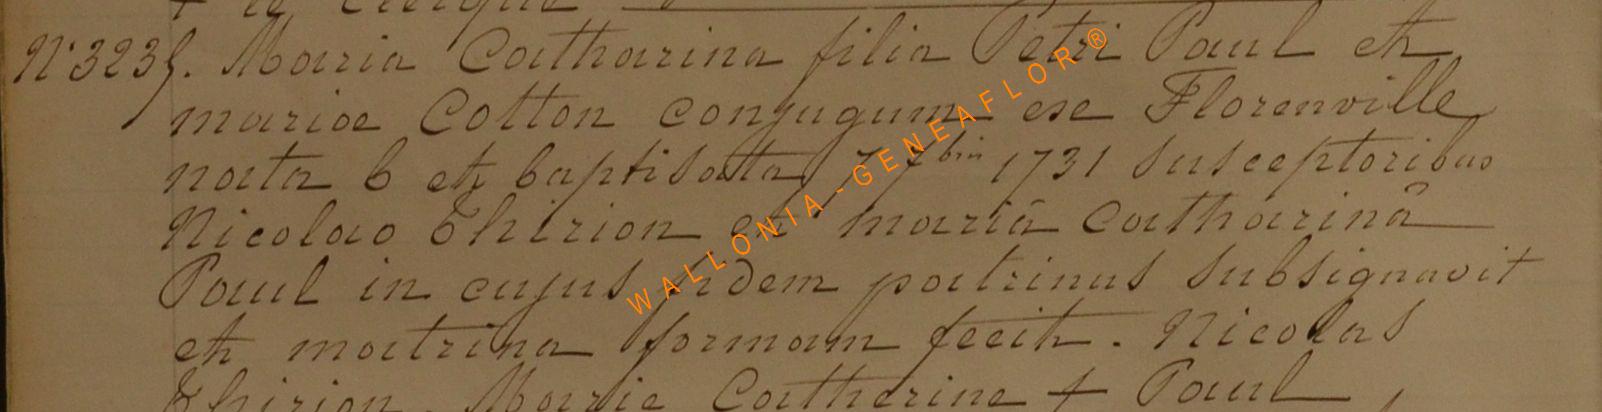 N° 3235. Maria Catharina filia Petri Paul et
mariae Cotton conjugum ex Florenville
nata 6 et baptisata 7 7bris 1731 susceptoribus
Nicolao Thirion et mariâ Catharinâ
Paul in cujus fidem patrinus subsignavit
et matrina formam fecit. Nicolas
Thirion. Marie Catherine + Paul
WALLONIA-GENEAFLOR®